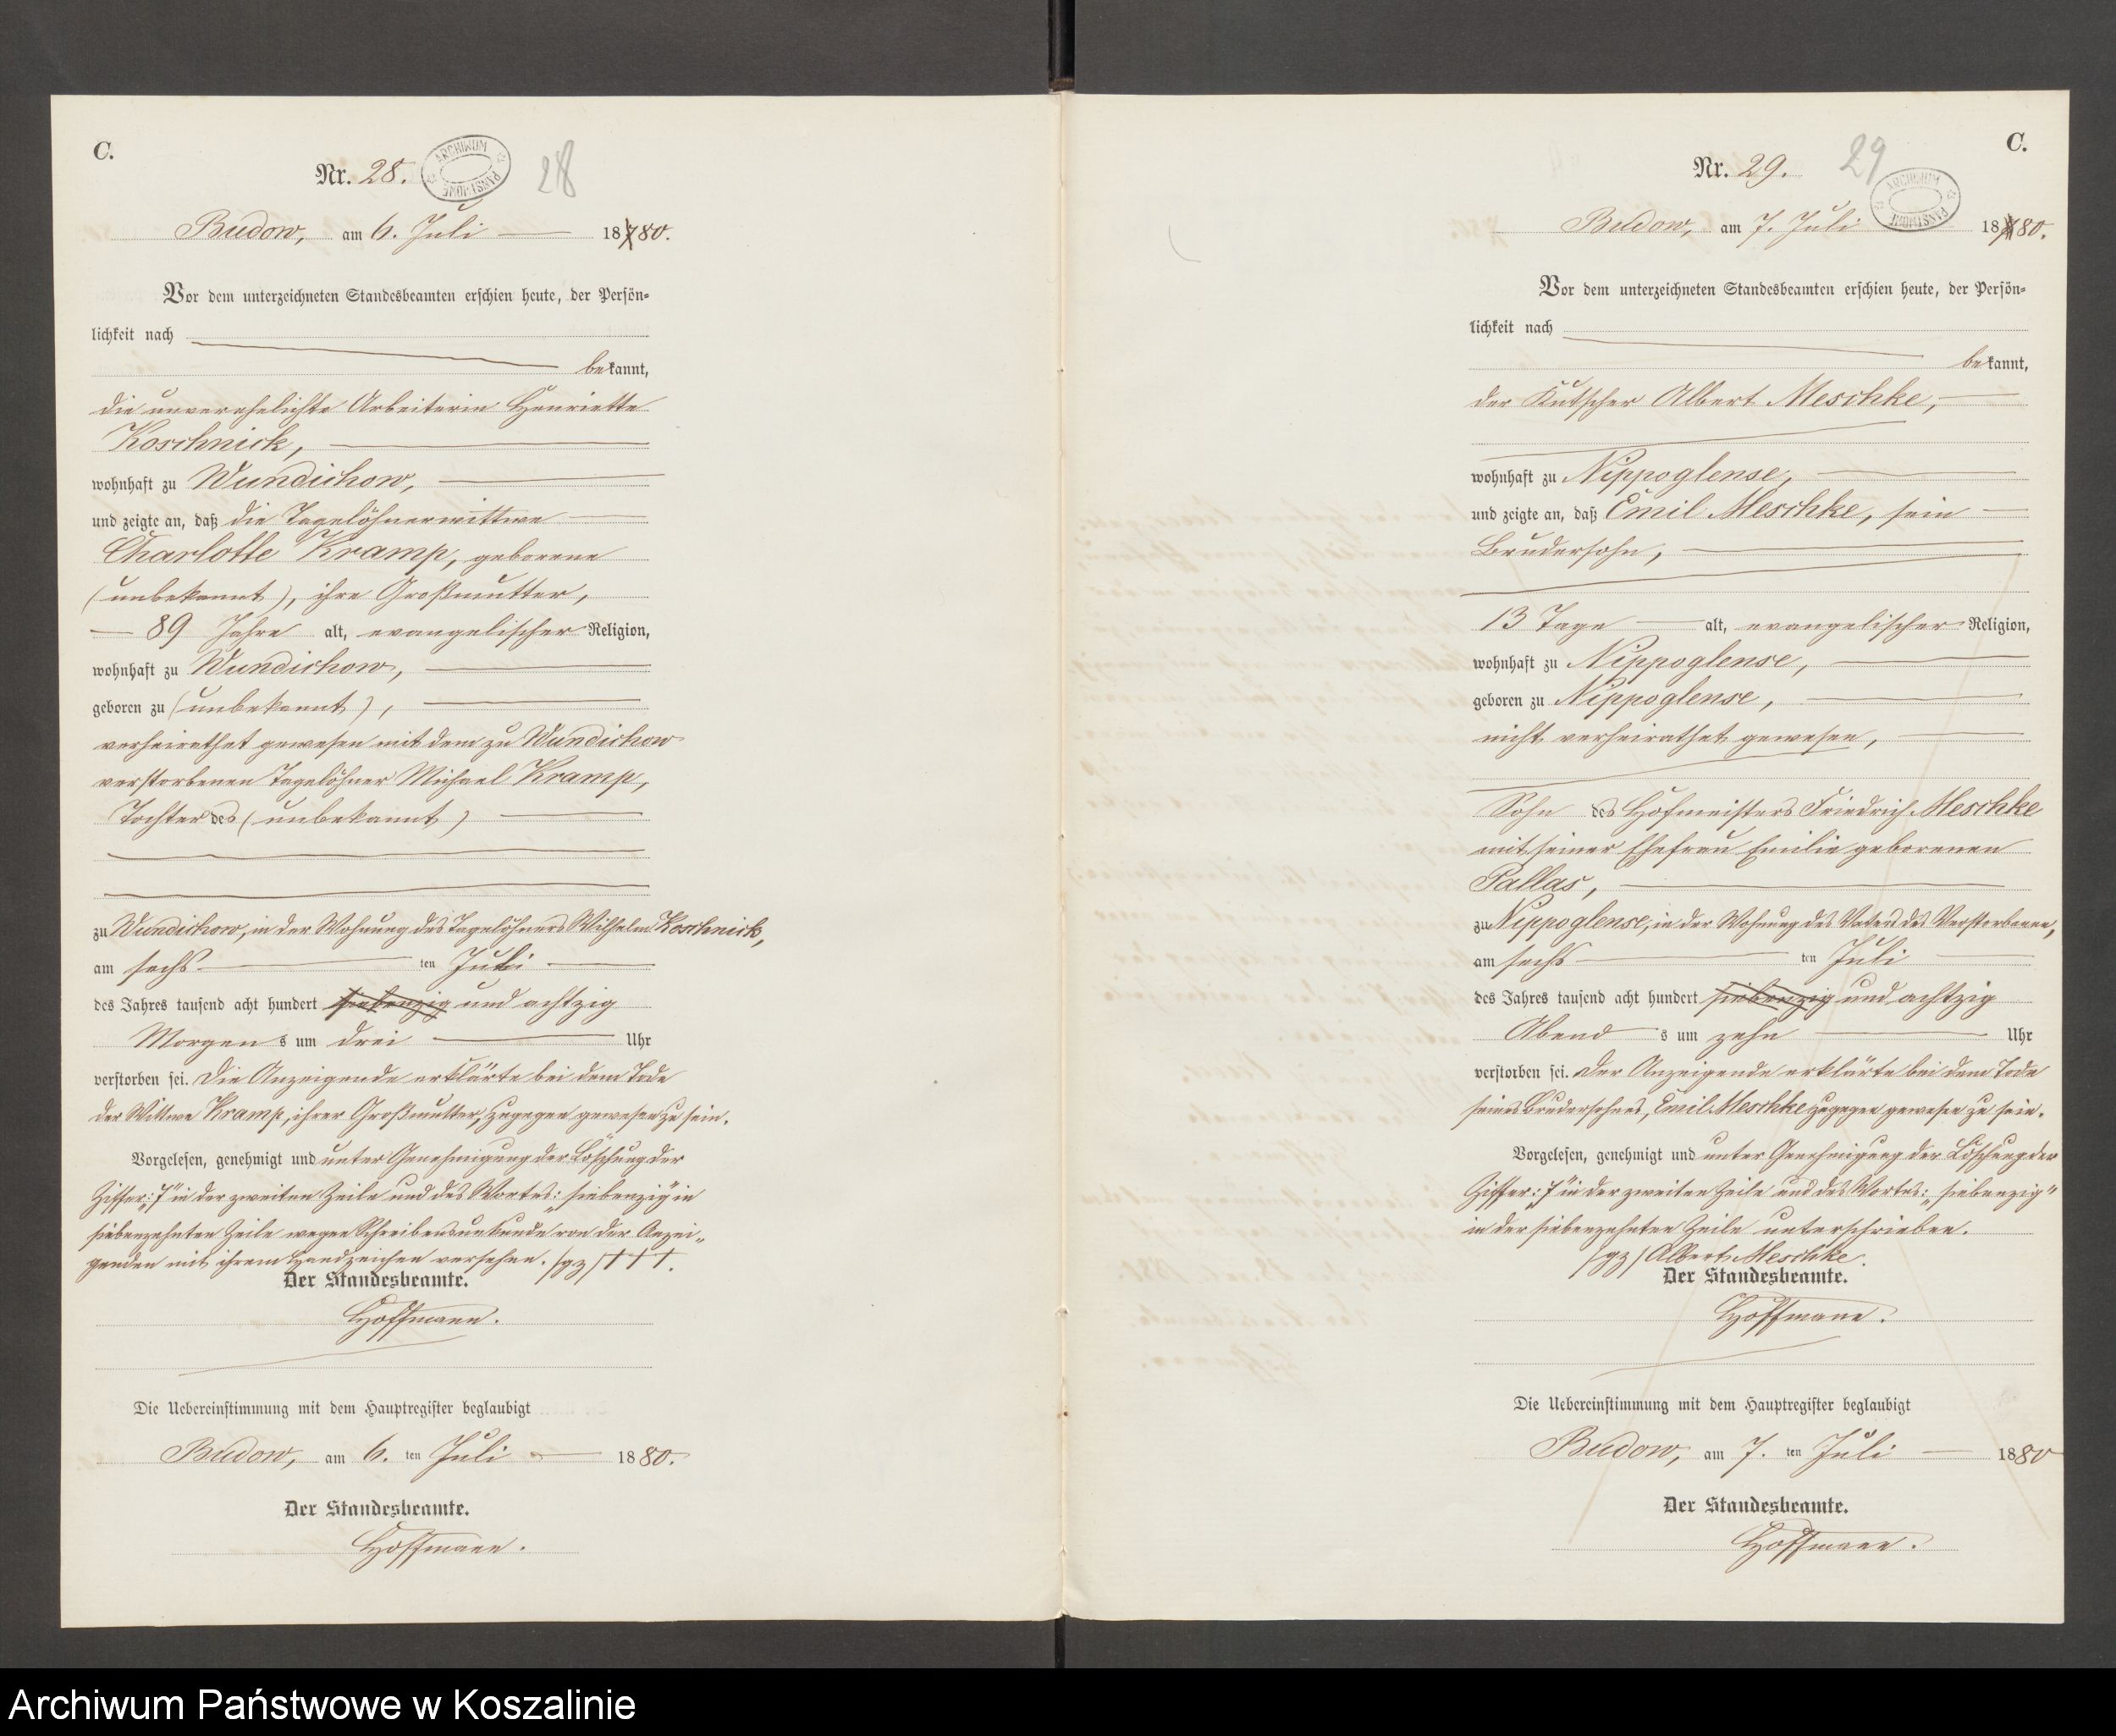 C.
Nr. 28.
ARCHIWUM PAŃSTWOWE
28
Budow, am 6. Juli 18780.
Vor dem unterzeichneten Standesbeamten erschien heute, der Persön-
lichkeit nach
bekannt,
die unverehelichte Arbeiterin Henriette
Koschnick,
wohnhaft zu Wundichow,
und zeigte an, daß die Tagelöhnerwittwe
Charlotte Kramp, geborene
(unbekannt), ihre Großmutter,
89 Jahre alt, evangelischer Religion,
wohnhaft zu Wundichow,
geboren zu (unbekannt),
verheirathet gewesen mit dem zu Wundichow
verstorbenen Tagelöhner Michael Kramp,
Tochter des (unbekannt)
zu Wundichow, in der Wohnung des Tagelöhners Wilhelm Koschnick,
am sechsten Juli
des Jahres tausend acht hundert siebenzig und achtzig
Morgens um drei Uhr
verstorben sei. Die Anzeigende erklärte bei dem Tode
der Wittwe Kramp, ihrer Großmutter, zugegen gewesen zu sein.
Vorgelesen, genehmigt und unter Genehmigung der Löschung der
Ziffer: „7" in der zweiten Zeile und des Wortes: „siebenzig" in
siebenzehnten Zeile wegen Schreibensunkunde von der Anzei-
genden mit ihrem Handzeichen versehen. /gz/ +++.
Der Standesbeamte.
Hoffmann.
Die Uebereinstimmung mit dem Hauptregister beglaubigt
Budow, am 6. ten Juli 1880.
Der Standesbeamte.
Hoffmann.
C.
Nr. 29.
29
ARCHIWUM PAŃSTWOWE
Budow, am 7. Juli 18780.
Vor dem unterzeichneten Standesbeamten erschien heute, der Persön-
lichkeit nach
bekannt,
der Kutscher Albert Meschke,
wohnhaft zu Nippoglense,
und zeigte an, daß Emil Meschke, sein
Brudersohn,
13 Tage alt, evangelischer Religion,
wohnhaft zu Nippoglense,
geboren zu Nippoglense,
nicht verheirathet gewesen,
Sohn des Hofmeisters Friedrich Meschke
mit seiner Ehefrau Emilie geborenen
Pallas,
zu Nippoglense, in der Wohnung des Vaters des Verstorbenen,
am sechsten Juli
des Jahres tausend acht hundert siebenzig und achtzig
Abends um zehn Uhr
verstorben sei. Der Anzeigende erklärte bei dem Tode
seines Brudersohnes, Emil Meschke zugegen gewesen zu sein.
Vorgelesen, genehmigt und unter Genehmigung der Löschung der
Ziffer: „7" in der zweiten Zeile und des Wortes: „siebenzig"
in der siebenzehnten Zeile unterschrieben.
/gz/ Albert Meschke.
Der Standesbeamte.
Hoffmann.
Die Uebereinstimmung mit dem Hauptregister beglaubigt
Budow, am 7. ten Juli 1880
Der Standesbeamte.
Hoffmann.
Archiwum Państwowe w Koszalinie